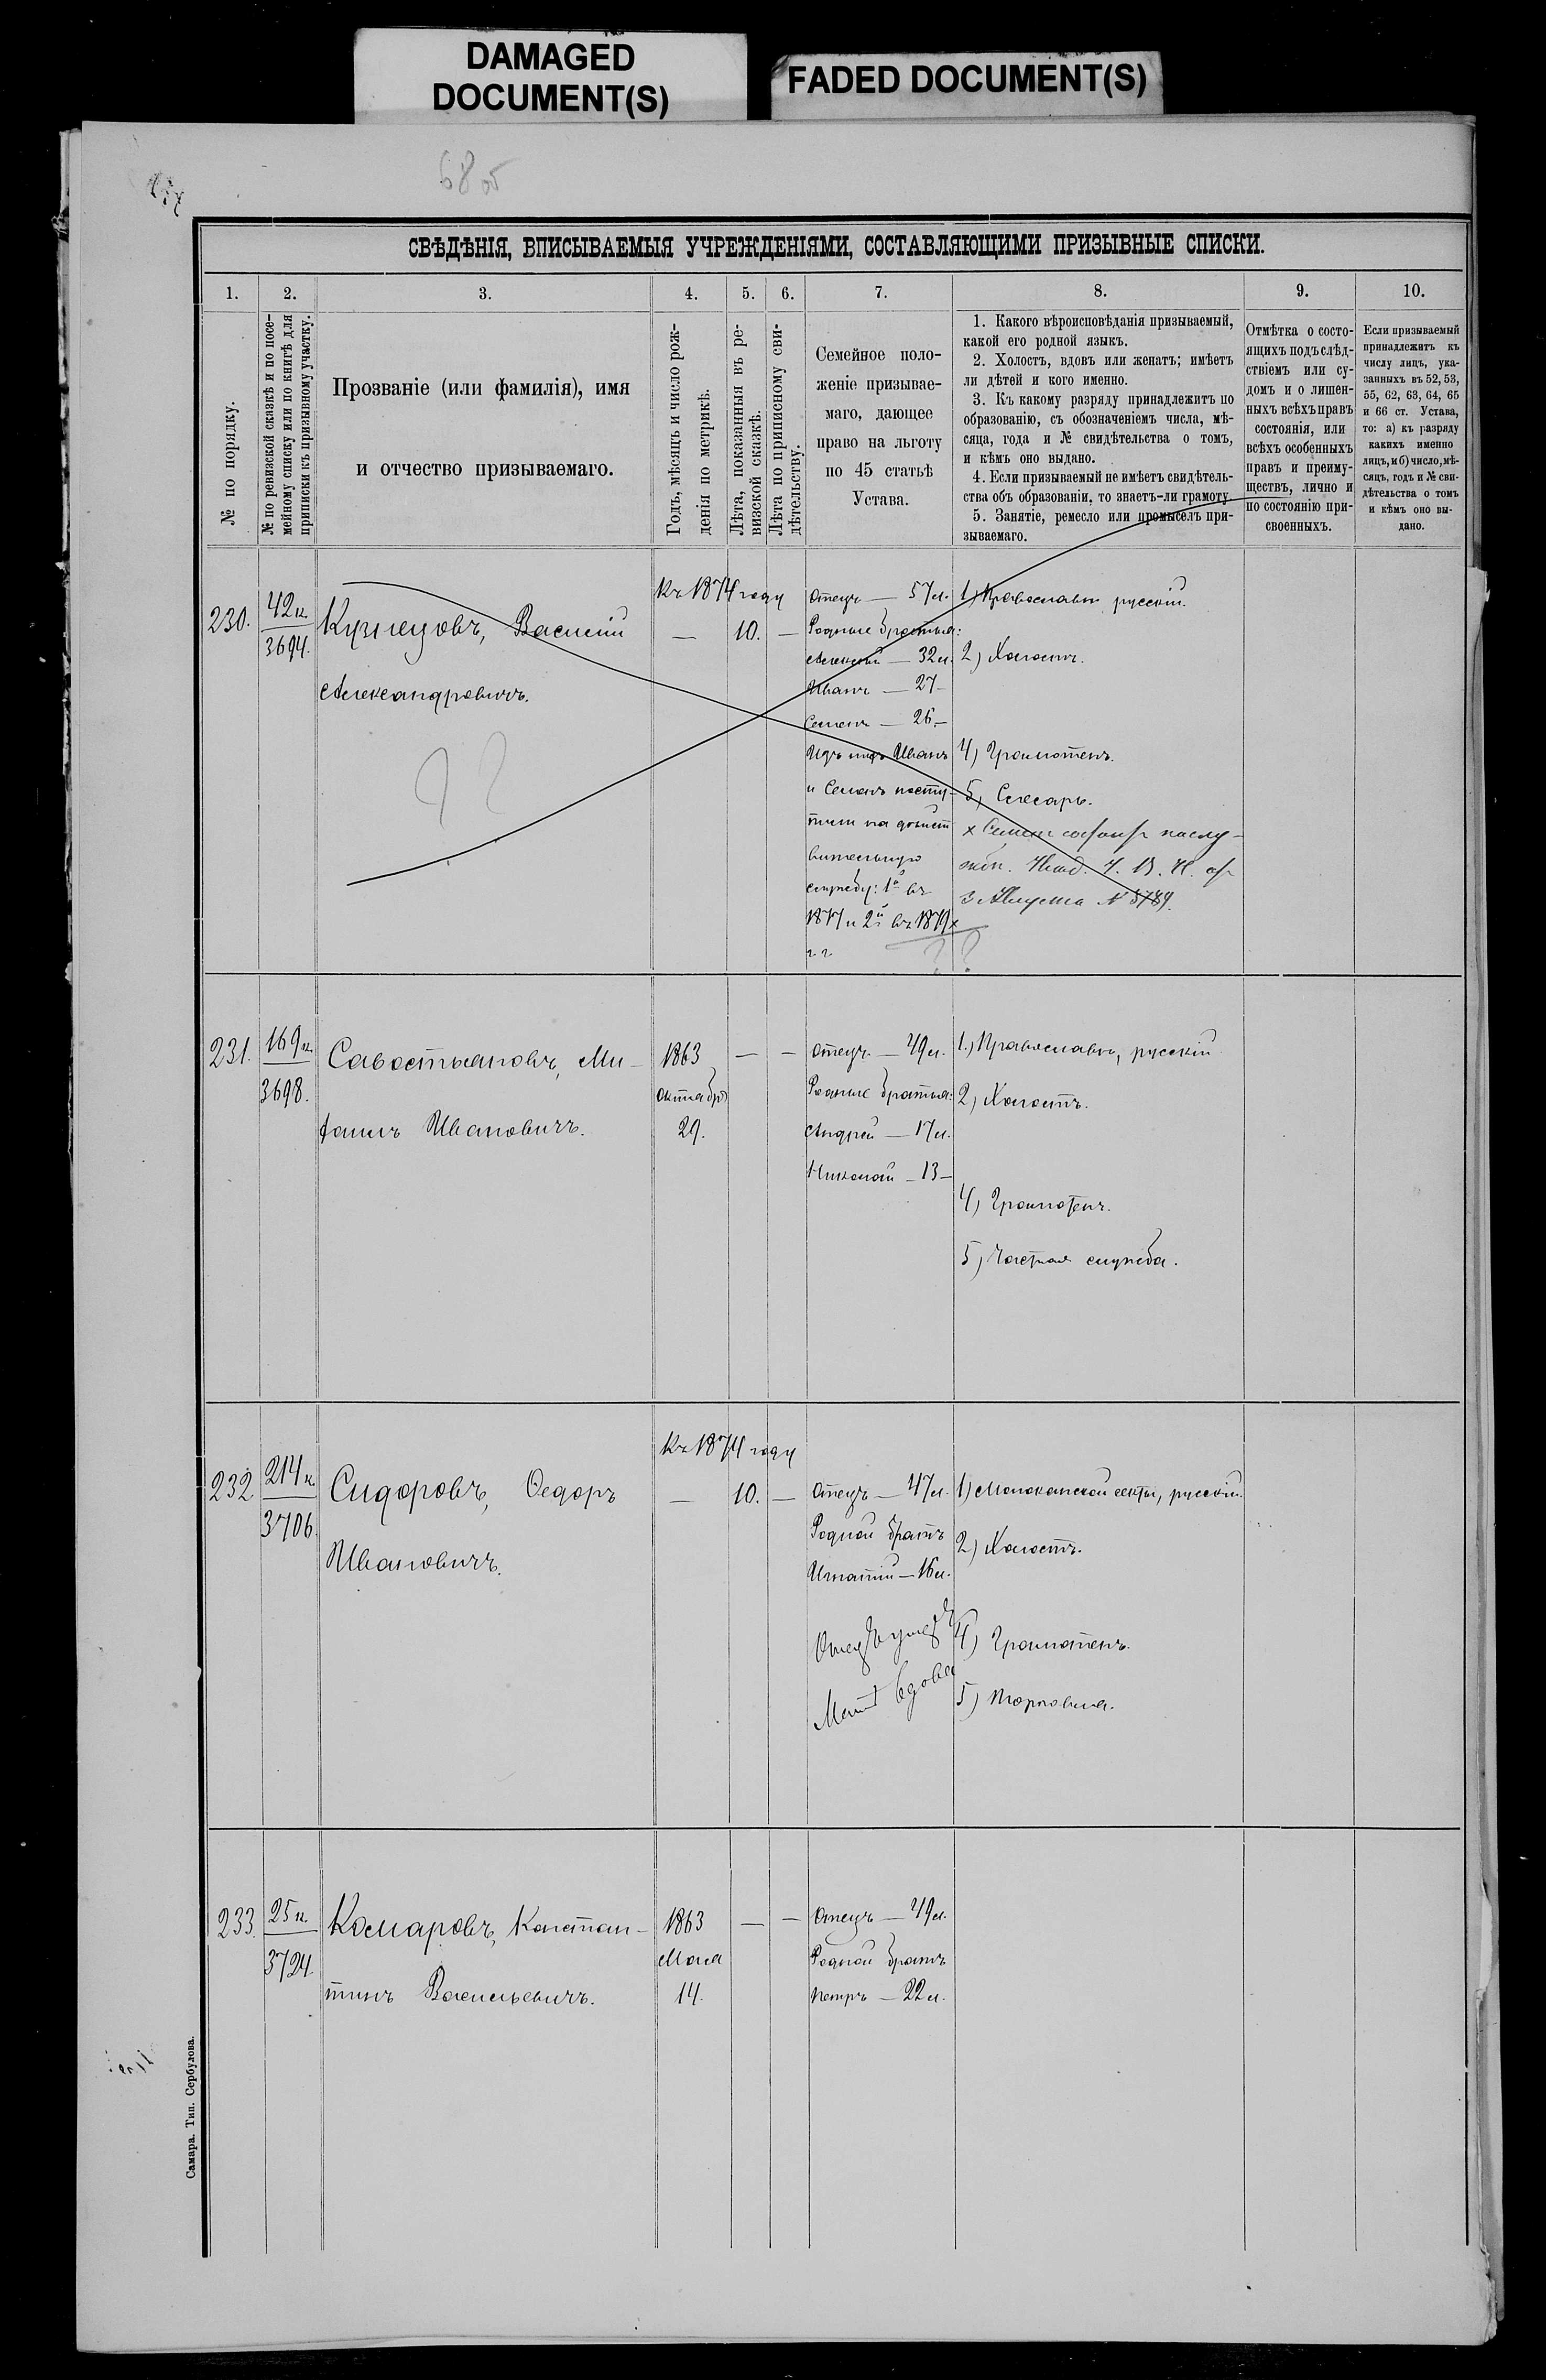 DAMAGED
DOCUMENT(S)
FADED DOCUMENT(S)
СВѢДѢНІЯ, ВПИСЫВАЕМЫЯ УЧРЕЖДЕНІЯМИ, СОСТАВЛЯЮЩИМИ ПРИЗЫВНЫЕ СПИСКИ.
1.
2.
3.
4.
5.
6.
7.
8.
9.
10.
№ по порядку.
№ по ревизской сказкѣ и по посе-
мейному списку или по книгѣ для
приписки къ призывному участку.
Прозваніе (или фамилія), имя
и отчество призываемаго.
Годъ, мѣсяцъ и число рож-
денія по метрикѣ.
Лѣта, показанныя въ ре-
визской сказкѣ.
Лѣта по приписному сви-
дѣтельству.
Семейное поло-
женіе призывае-
маго, дающее
право на льготу
по 45 статьѣ
Устава.
1. Какого вѣроисповѣданія призываемый,
какой его родной языкъ.
2. Холостъ, вдовъ или женатъ; имѣетъ
ли дѣтей и кого именно.
3. Къ какому разряду принадлежитъ по
образованію, съ обозначеніемъ числа, мѣ-
сяца, года и № свидѣтельства о томъ,
и кѣмъ оно выдано.
4. Если призываемый не имѣетъ свидѣтель-
ства объ образованіи, то знаетъ-ли грамоту.
5. Занятіе, ремесло или промыселъ при-
зываемаго.
Отмѣтка о состо-
ящихъ подъ слѣд-
ствіемъ или су-
домъ и о лишен-
ныхъ всѣхъ правъ
состоянія, или
всѣхъ особенныхъ
правъ и преиму-
ществъ, лично и
по состоянію при-
своенныхъ.
Если призываемый
принадлежитъ къ
числу лицъ, ука-
занныхъ въ 52, 53,
55, 62, 63, 64, 65
и 66 ст. Устава,
то: а) къ разряду
какихъ именно
лицъ, и б) число, мѣ-
сяцъ, годъ и № сви-
дѣтельства о томъ
и кѣмъ оно вы-
дано.
230.
42 к.
3694.
Кузнецовъ, Василій
Александровичъ.
Къ 1874 году
—
10.
—
Отецъ — 57 л.
Родные братья:
Алексѣй — 32 л.
Иванъ — 27 —
Семенъ — 26. —
Изъ нихъ Иванъ
и Семенъ посту-
пили на дѣйст
вительную
службу: 1й въ
1877 и 2й въ 1879 х
г г
1) Православн русскій.
2) Холостъ.
4) Грамотенъ.
5) Слесарь.
х Семенъ
3 Августа № 3789.
231.
169 к.
3698.
Савостьяновъ, Ми-
фаилъ Ивановичъ.
1863
Октября
29.
—
—
Отецъ — 49 л.
Родные братья:
Андрей — 17 л.
Николай — 13 —
1.) Православн, русскій
2) Холостъ.
4) Грамотенъ.
5) Частная служба.
232
214 к.
3706.
Сидоровъ, Ѳедоръ
Ивановичъ.
Къ 1874 году
—
10.
—
Отецъ — 47 л.
Родной братъ
Игнатій — 16 л.
Отецъ умеръ
Мать вдова
1) Молоканской секты, русскій.
2) Холостъ.
4) Грамотенъ.
5) Торговля.
233.
25 к.
3724.
Комаровъ, Констан-
тинъ Васильевичъ.
1863
Мая
14.
—
—
Отецъ — 49 л.
Родной братъ
Петръ — 22 л.
Самара. Тип. Сербулова.